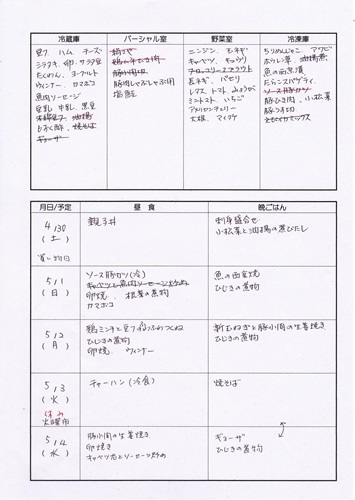 冷蔵庫 パーシャル室 野菜室 冷凍庫
豆フ、ハム、チーズ
シラタキ、卵、サラダ豆
たくあん、ヨーグルト
ウィンナー、カマボコ
魚肉ソーセージ
豆乳、牛乳、黒豆
油揚
焼そば
ギョーザ
豚肉しゃぶしゃぶ用
塩鮭
ニンジン、玉ネギ
キャベツ、キュウリ
ブロッコリースプラウト
長ネギ、パセリ
レタス、トマト、みょうが
ミニトマト、いちご
アメリカンチェリー
大根、マイタケ
ちりめんじゃこ、アワビ
ホウレン草、油揚
魚の西京漬
たらこスパゲティ
ソース豚カツ
豚ひき肉、小松菜
豚バラ肉
月日/予定 昼食 晩ごはん
4/30
(土)
買い物日
親子丼
刺身盛合せ
小松菜と油揚の煮びたし
5/1
(日)
ソース豚カツ(冷)
キャベツと魚肉ソーセージ炒め
卵焼、根菜の煮物
カマボコ
魚の西京焼
ひじきの煮物
5/2
(月)
ひじきの煮物
卵焼、ウィンナー
新玉ねぎと豚小間の生姜焼き
ひじきの煮物
5/3
(火)
休み
火曜市
チャーハン(冷食)
焼そば
5/4
(水)
豚小間の生姜焼き
卵焼き
キャベツとソーセージ炒め
ギョーザ
ひじきの煮物